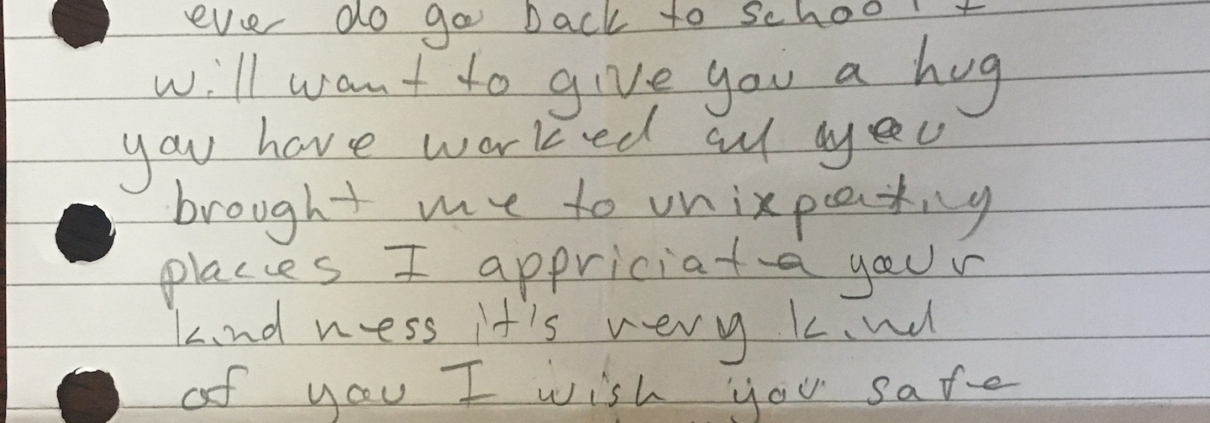 ever do go back to school I
will want to give you a hug
you have worked all you
brought me to unixpeating
places I appriciate your
kindness it's very kind
of you I wish you safe